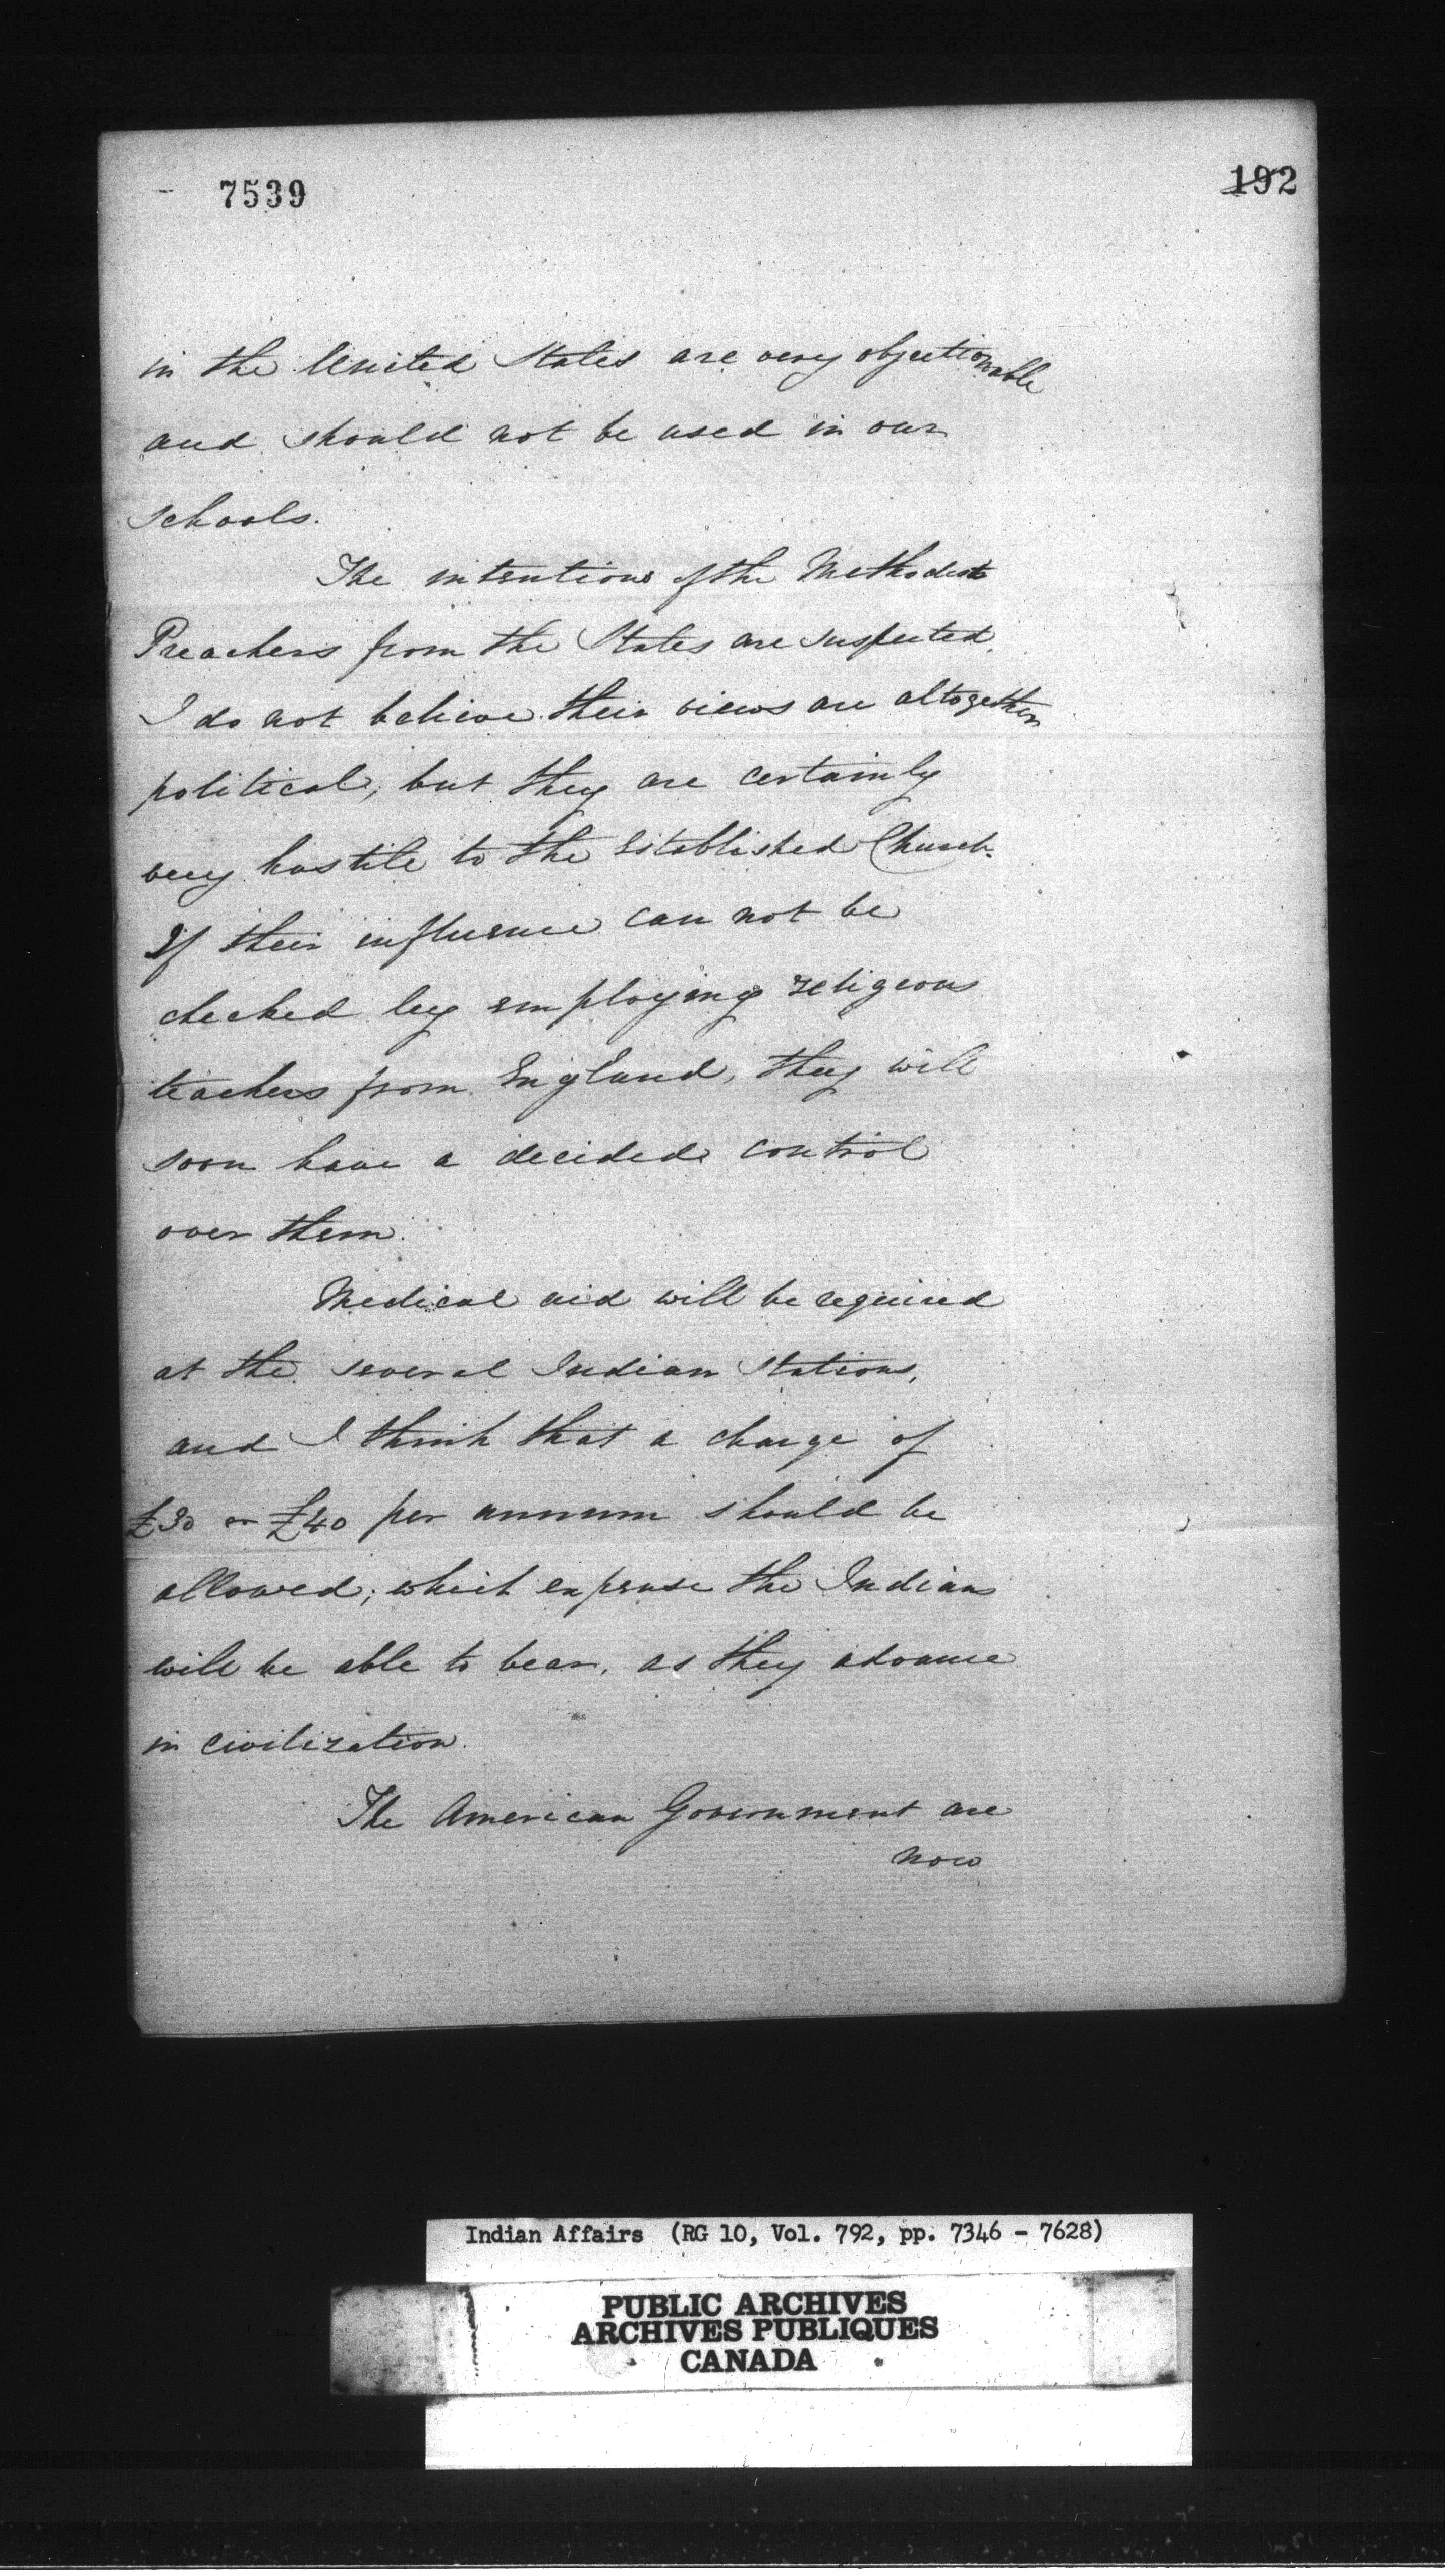 7539
192
in the United States are very objectionable
and should not be used in our
schools.
The intentions of the Methodist
Preachers from the States are suspected.
I do not believe their views are altogether
political, but they are certainly
very hostile to the Established Church.
If their influence can not be
checked by employing religious
teachers from England, they will
soon have a decided control
over them.
Medical aid will be required
at the several Indian Stations,
and I think that a charge of
£30 or £40 per annum should be
allowed; which expense the Indians
will be able to bear, as they advance
in civilization.
The American Government are
now
Indian Affairs (RG 10, Vol. 792, pp. 7346 - 7628)
PUBLIC ARCHIVES
ARCHIVES PUBLIQUES
CANADA